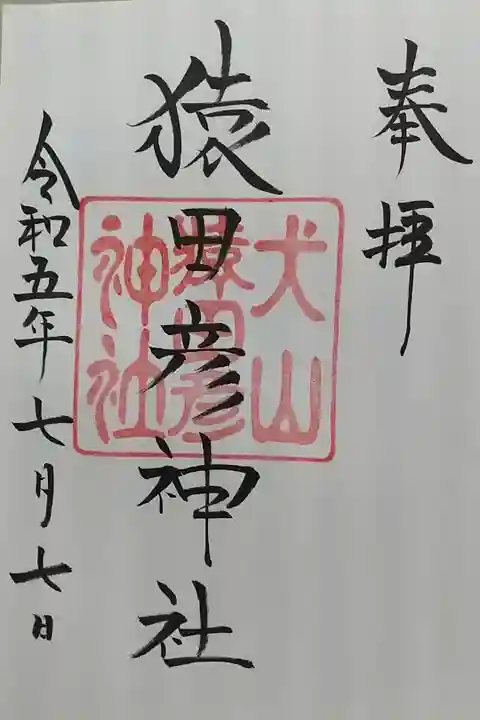 奉拝
犬山
猿田彦
神社
猿田彦神社
令和五年七月七日